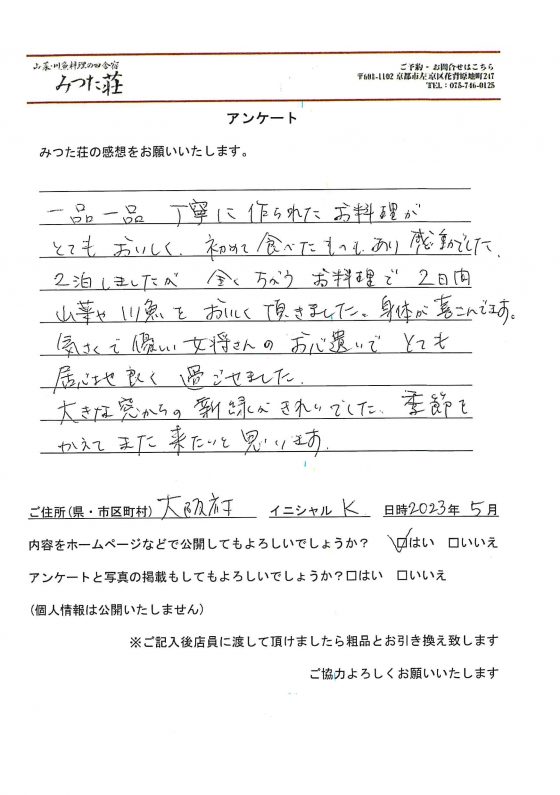 山菜・川魚料理の田舎宿
みつた荘
ご予約・お問合せはこちら
〒601-1102 京都市左京区花背原地町247
TEL：075-746-0125
アンケート
みつた荘の感想をお願いいたします。
一品一品 丁寧に作られたお料理が
とてもおいしく、初めて食べたものもあり感動でした。
2泊しましたが 全くちがうお料理で2日間
山菜や川魚をおいしく頂きました。身体が喜こんでます。
気さくで優しい女将さんのお心遣いでとても
居心地良く過ごせました。
大きな窓からの新緑がきれいでした。季節を
かえてまた来たいと思います。
ご住所(県・市区町村) 大阪府 イニシャル K 日時2023年 5月
内容をホームページなどで公開してもよろしいでしょうか？ ☑はい □いいえ
アンケートと写真の掲載もしてもよろしいでしょうか？□はい □いいえ
(個人情報は公開いたしません)
※ご記入後店員に渡して頂けましたら粗品とお引き換え致します
ご協力よろしくお願いいたします